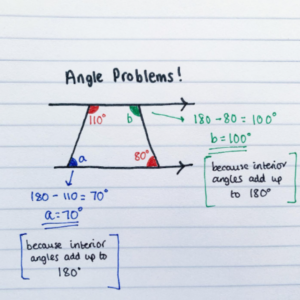 Angle Problems!
110°
b
180 - 80 = 100°
b = 100°
because interior
angles add up
to 180°
a
80°
180 - 110 = 70°
a = 70°
because interior
angles add up to
180°